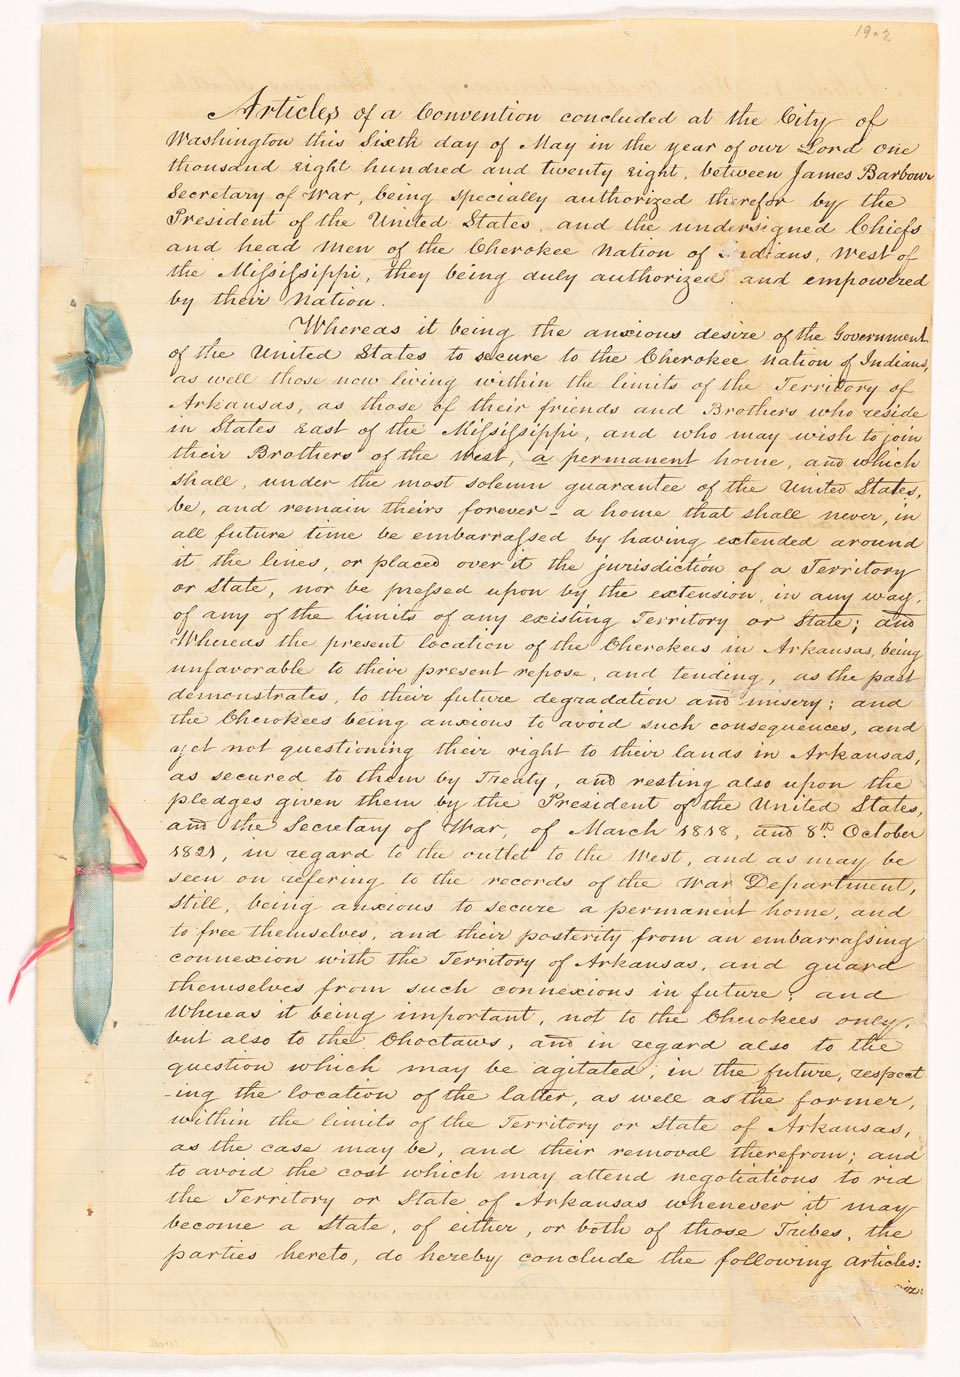 19.2
Articles of a Convention concluded at the City of
Washington this Sixth day of May in the year of our Lord one
thousand eight hundred and twenty eight, between James Barbour
Secretary of War, being specially authorized therefor by the
President of the United States, and the undersigned Chiefs
and head men of the Cherokee Nation of Indians, West of
the Mississippi, they being duly authorized and empowered
by their Nation.
Whereas it being the anxious desire of the Government
of the United States to secure to the Cherokee nation of Indians,
as well those now living within the limits of the Territory of
Arkansas, as those of their friends and Brothers who reside
in States East of the Mississippi, and who may wish to join
their Brothers of the West, a permanent home, and which
shall, under the most solemn guarantee of the United States,
be, and remain theirs forever - a home that shall never, in
all future time be embarrassed by having extended around
it the lines, or placed over it the jurisdiction of a Territory
or State, nor be pressed upon by the extension, in any way,
of any of the limits of any existing Territory or State; and
Whereas the present location of the Cherokees in Arkansas, being
unfavorable to their present repose, and tending, as the past
demonstrates, to their future degradation and misery; and
the Cherokees being anxious to avoid such consequences, and
yet not questioning their right to their lands in Arkansas,
as secured to them by Treaty, and resting also upon the
pledges given them by the President of the United States,
and the Secretary of War, of March 1818, and 8th October
1821, in regard to the outlet to the West, and as may be
seen on refering to the records of the War Department,
still, being anxious to secure a permanent home, and
to free themselves, and their posterity from an embarrassing
connexion with the Territory of Arkansas, and guard
themselves from such connexions in future; and
Whereas it being important, not to the Cherokees only,
but also to the Choctaws, and in regard also to the
question which may be agitated, in the future, respect
-ing the location of the latter, as well as the former,
within the limits of the Territory or State of Arkansas,
as the case may be, and their removal therefrom; and
to avoid the cost which may attend negotiations to rid
the Territory or State of Arkansas whenever it may
become a State, of either, or both of those Tribes, the
parties hereto, do hereby conclude the following articles:
viz: